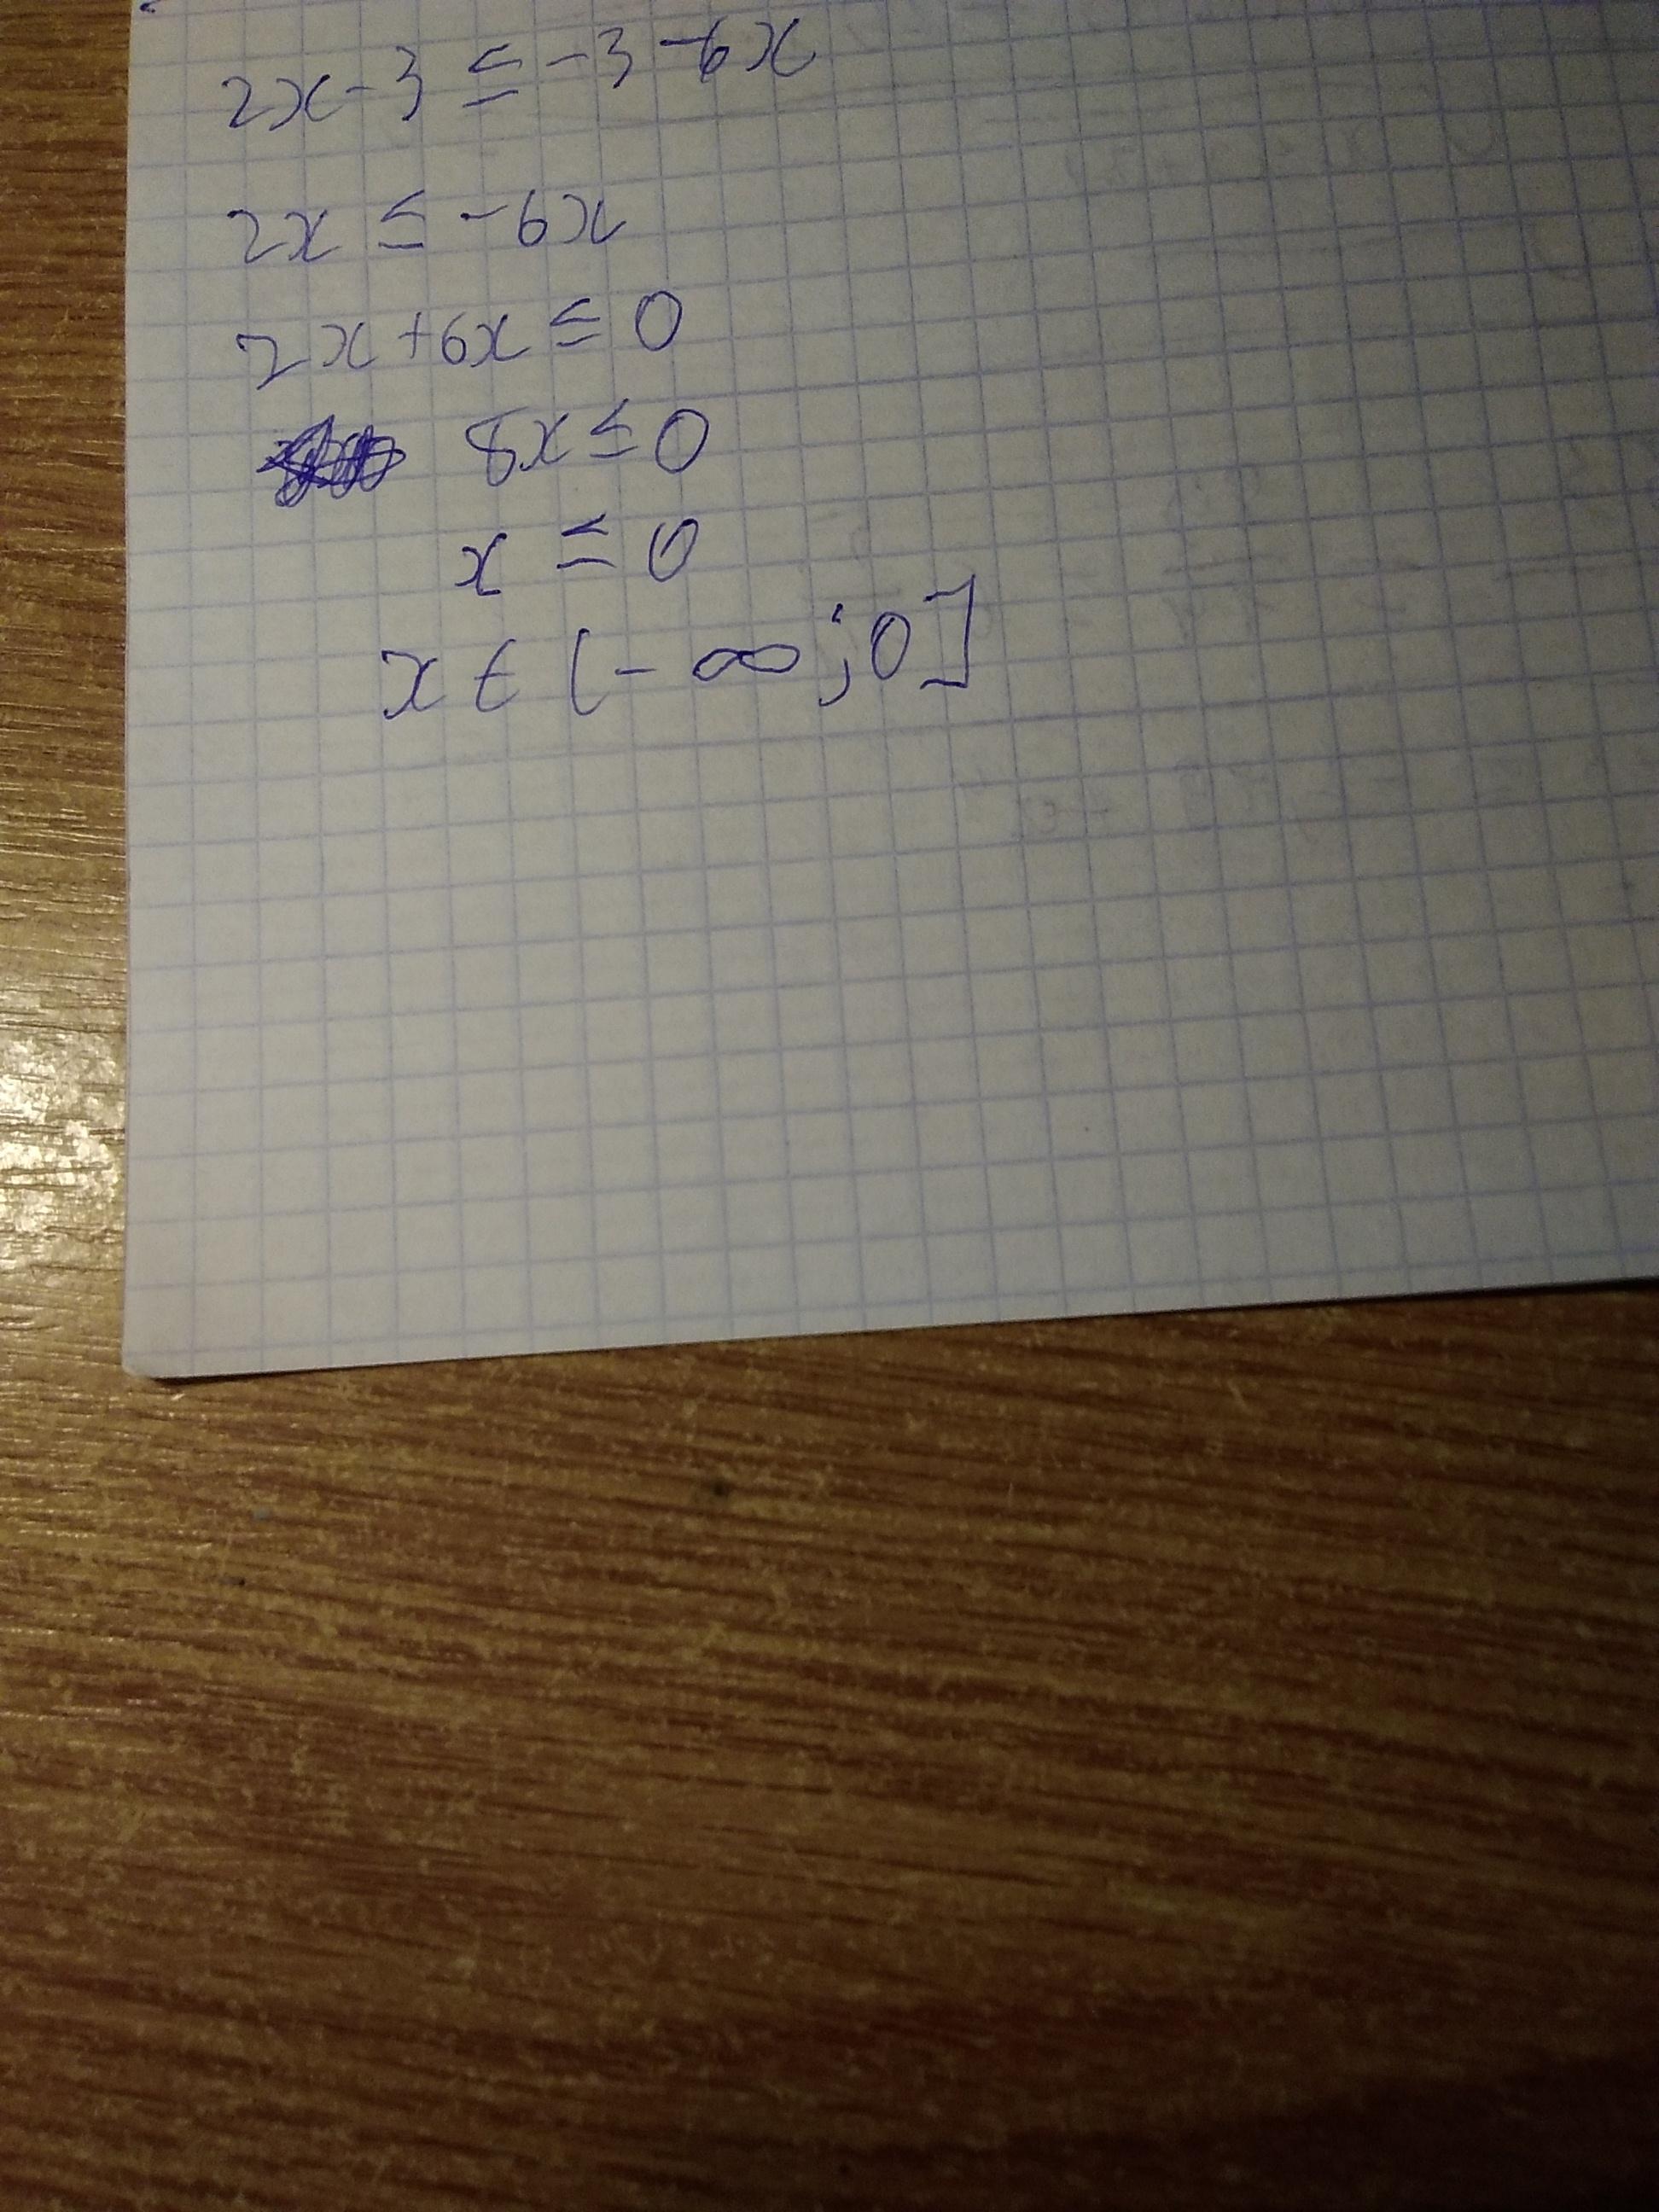 2x-3 ≤ -3-6x
2x ≤ -6x
2x+6x ≤ 0
8x ≤ 0
x ≤ 0
x ∈ (-∞;0]